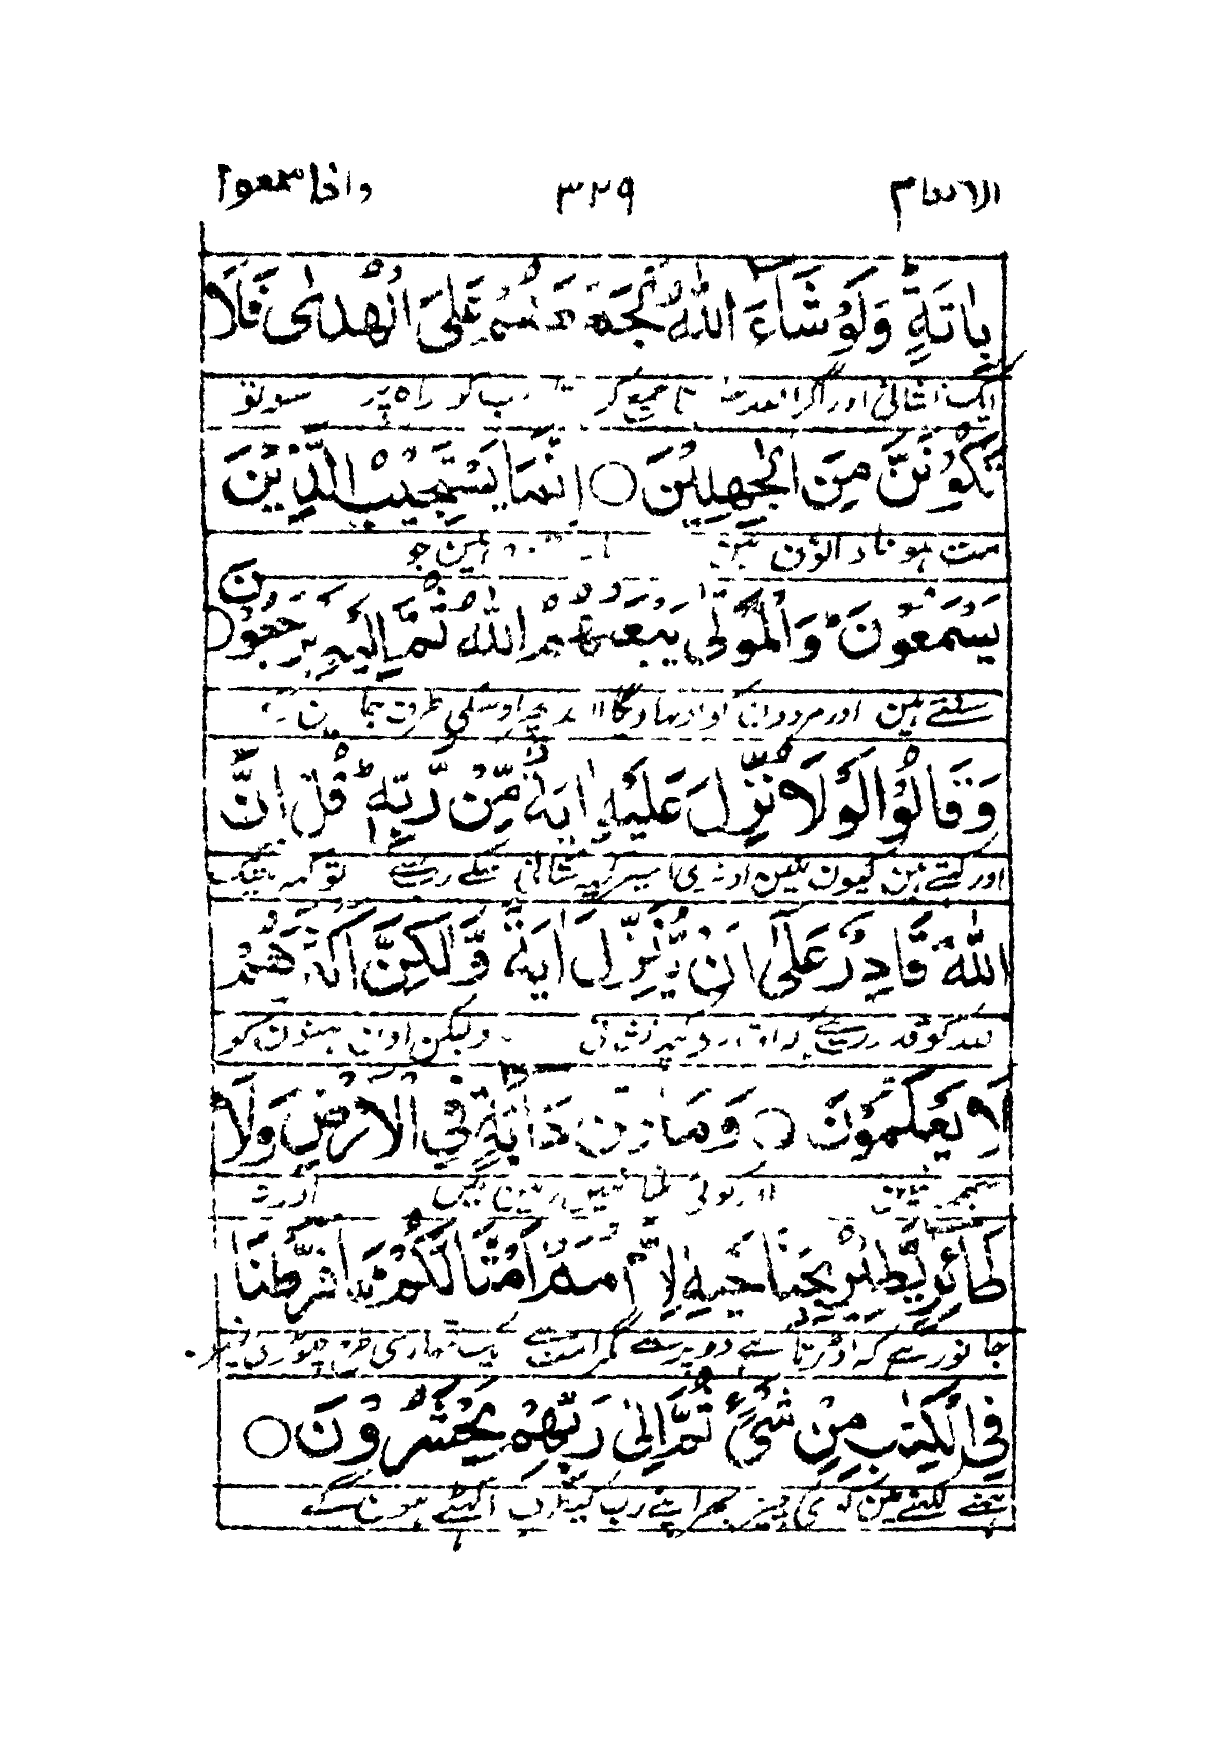 الانعام ۳۲۹ واذا سمعوا
بِاٰيَةٍ وَلَوْ شَآءَ اللّٰهُ لَجَمَعَهُمْ عَلَى الْهُدٰى فَلَا
ایک نشانی اور اگر اللہ جمع کر راہ پر سو تو
تَكُوْنَنَّ مِنَ الْجٰهِلِيْنَ ○ اِنَّمَا يَسْتَجِيْبُ الَّذِيْنَ
مت ہو نادانون مین ہین جو
يَسْمَعُوْنَ وَالْمَوْتٰى يَبْعَثُهُمُ اللّٰهُ ثُمَّ اِلَيْهِ يُرْجَعُوْنَ ○
سنتے ہین اور مردون کو اوٹھاویگا اللہ پھر اوسکی طرف
وَقَالُوْا لَوْلَا نُزِّلَ عَلَيْهِ اٰيَةٌ مِّنْ رَّبِّهٖ قُلْ اِنَّ
اور کہتے ہین کیون نہین اوتری اسپر کچہہ نشانی اسکے رب سے تو کہہ
اللّٰهَ قَادِرٌ عَلٰٓى اَنْ يُّنَزِّلَ اٰيَةً وَّلٰكِنَّ اَكْثَرَهُمْ
اللہ کو قدرت ہے نشانی ولیکن اون بہتون کو
لَا يَعْلَمُوْنَ ○ وَمَا مِنْ دَآبَّةٍ فِي الْاَرْضِ وَلَا
سمجہہ نہین اور کوئی چلتا نہین زمین مین اور نہ
طٰٓئِرٍ يَّطِيْرُ بِجَنَاحَيْهِ اِلَّآ اُمَمٌ اَمْثَالُكُمْ مَا فَرَّطْنَا
جانور ہے کہ اڑتا ہے دو پر سے مگر امت ہے تمہاری طرح چھوڑی
فِي الْكِتٰبِ مِنْ شَيْءٍ ثُمَّ اِلٰى رَبِّهِمْ يُحْشَرُوْنَ ○
ہمنے لکھنے مین کوئی چیز پھر اپنے رب کیطرف اکٹھے ہون گے